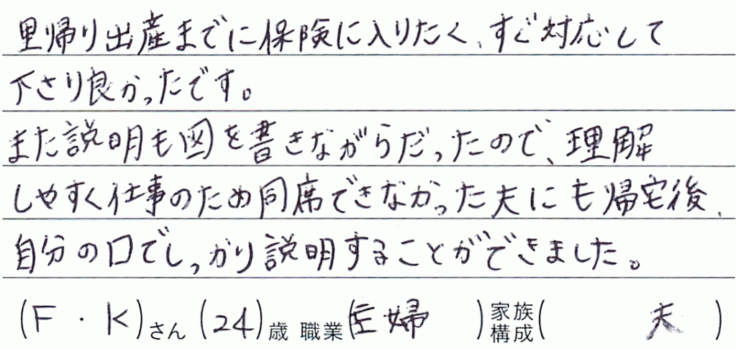 里帰り出産までに保険に入りたく、すぐ対応して
下さり良かったです。
また説明も図を書きながらだったので、理解
しやすく仕事のため同席できなかった夫にも帰宅後、
自分の口でしっかり説明することができました。
(F・K)さん(24)歳 職業(主婦)家族構成(夫)